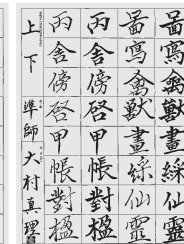 啚寫禽獸畫綵仙靈
啚寫禽獸畫綵仙靈
丙舍傍啓甲帳對楹
丙舍傍啓甲帳對楹
上下
準師
大村真理